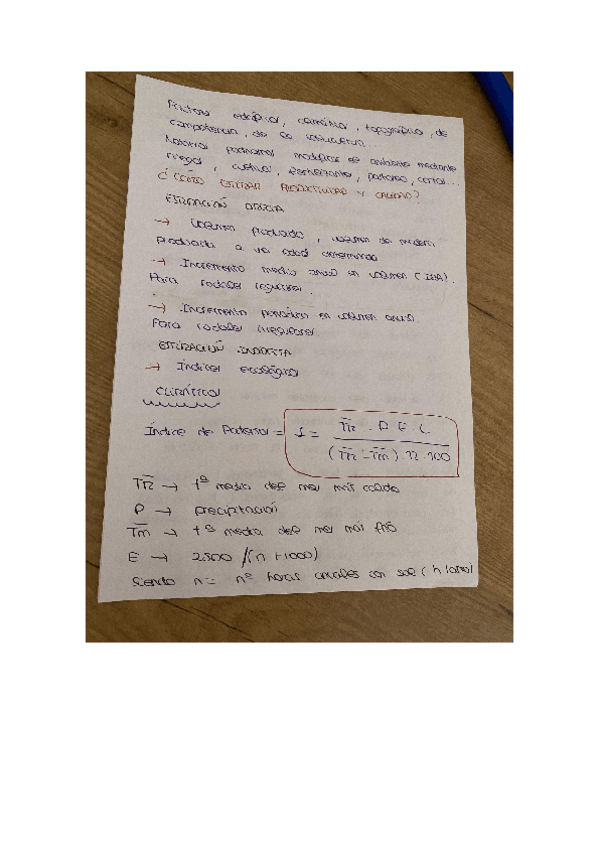 Factores edáficos, climáticos, topográficos, de
competencia, de la silvicultura...
Nosotros podríamos modificar el ambiente mediante
riegos, cultivos, fertilizantes, pastoreo, cortas...
¿CÓMO ESTIMAR PRODUCTIVIDAD Y CALIDAD?
ESTIMACIÓN DIRECTA
→ Volumen producido, volumen de madera
producida a una edad determinada
→ Incremento medio anual en volumen (IMA).
Para rodales regulares.
→ Incremento periódico en volumen anual.
Para rodales irregulares.
ESTIMACIÓN INDIRECTA
→ Índices ecológicos
CLIMÁTICOS
Índice de Paterson = I = T̄12 . P . E . C / (T̄12 - T̄m) . 12 . 100
T̄12 → tª media del mes más cálido
P → precipitación
T̄m → tª media del mes más frío
E → 2500 /(n + 1000)
Siendo n = nº horas anuales con sol (h/año)